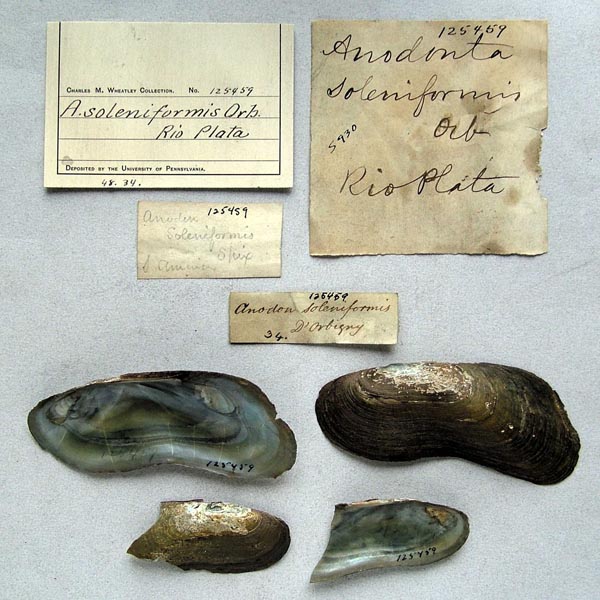 CHARLES M. WHEATLEY COLLECTION. No. 125459
A. soleniformis Orb.
Rio Plata
DEPOSITED BY THE UNIVERSITY OF PENNSYLVANIA.
48.34.
125459
Anodonta
soleniformis
Orb
5930
Rio Plata
125459
Anodon
Soleniformis
Spix
S. America
125459
Anodon soleniformis
D'Orbigny
34.
125459
125459